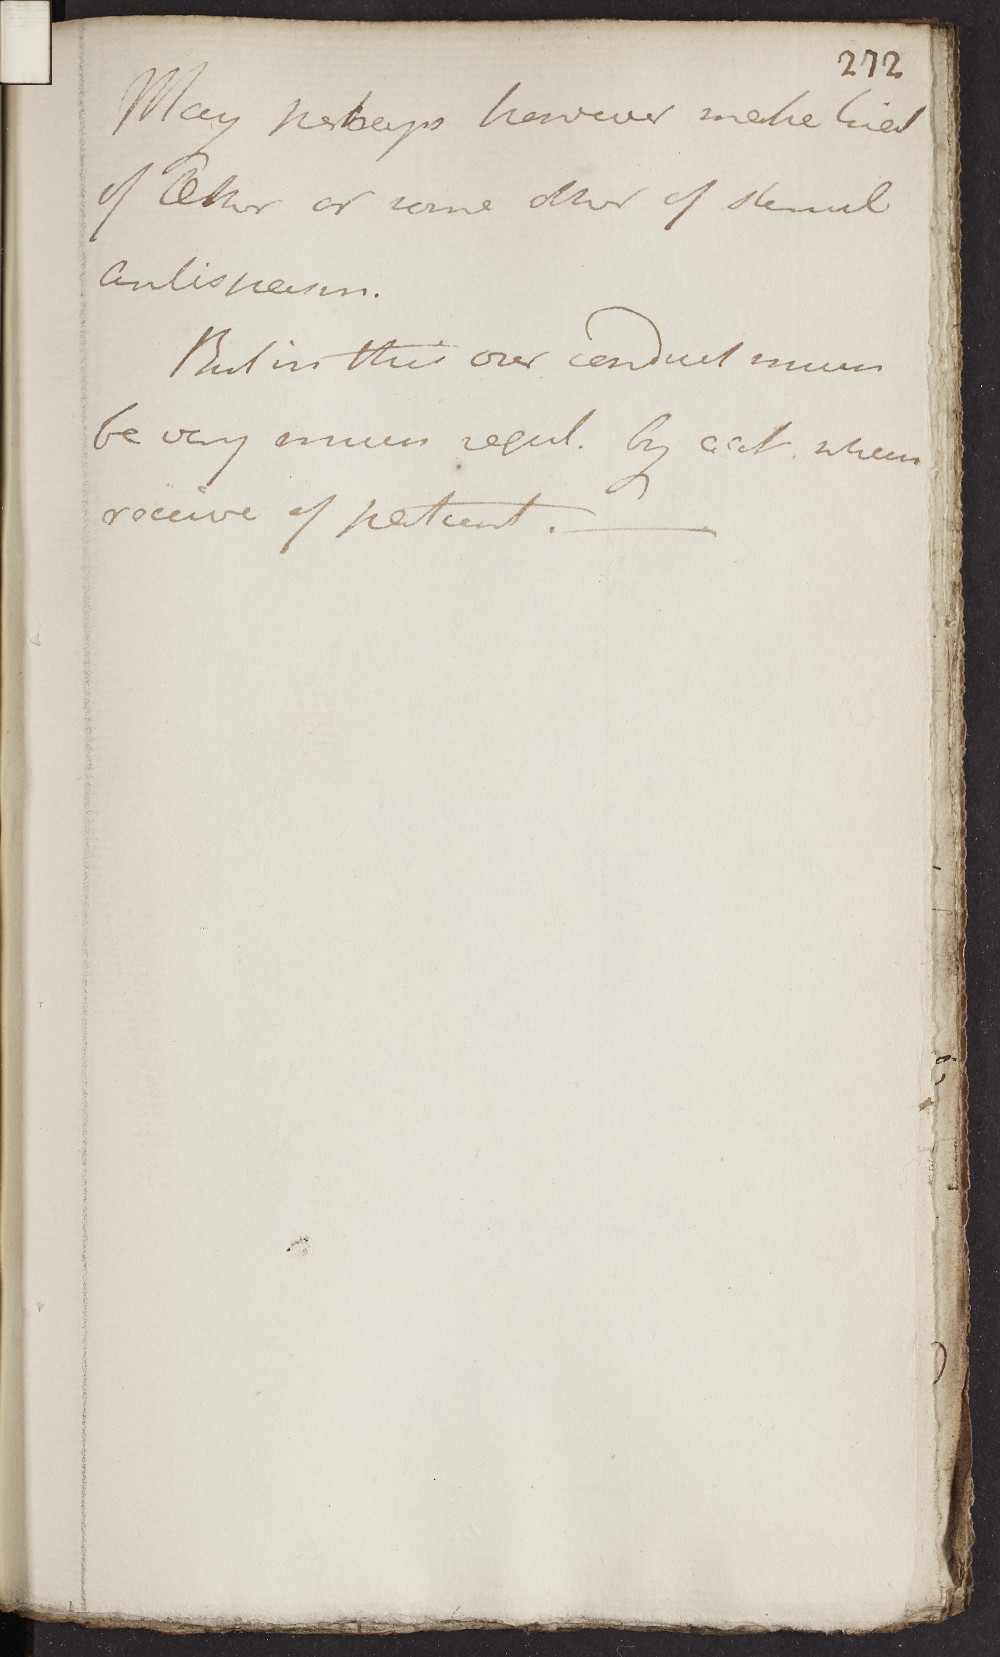 272
May perhaps however make trial
of Æther or some other of stimul
antispasm.
But in this our conduct must
be very much regul. by acct. when
receive of patient.